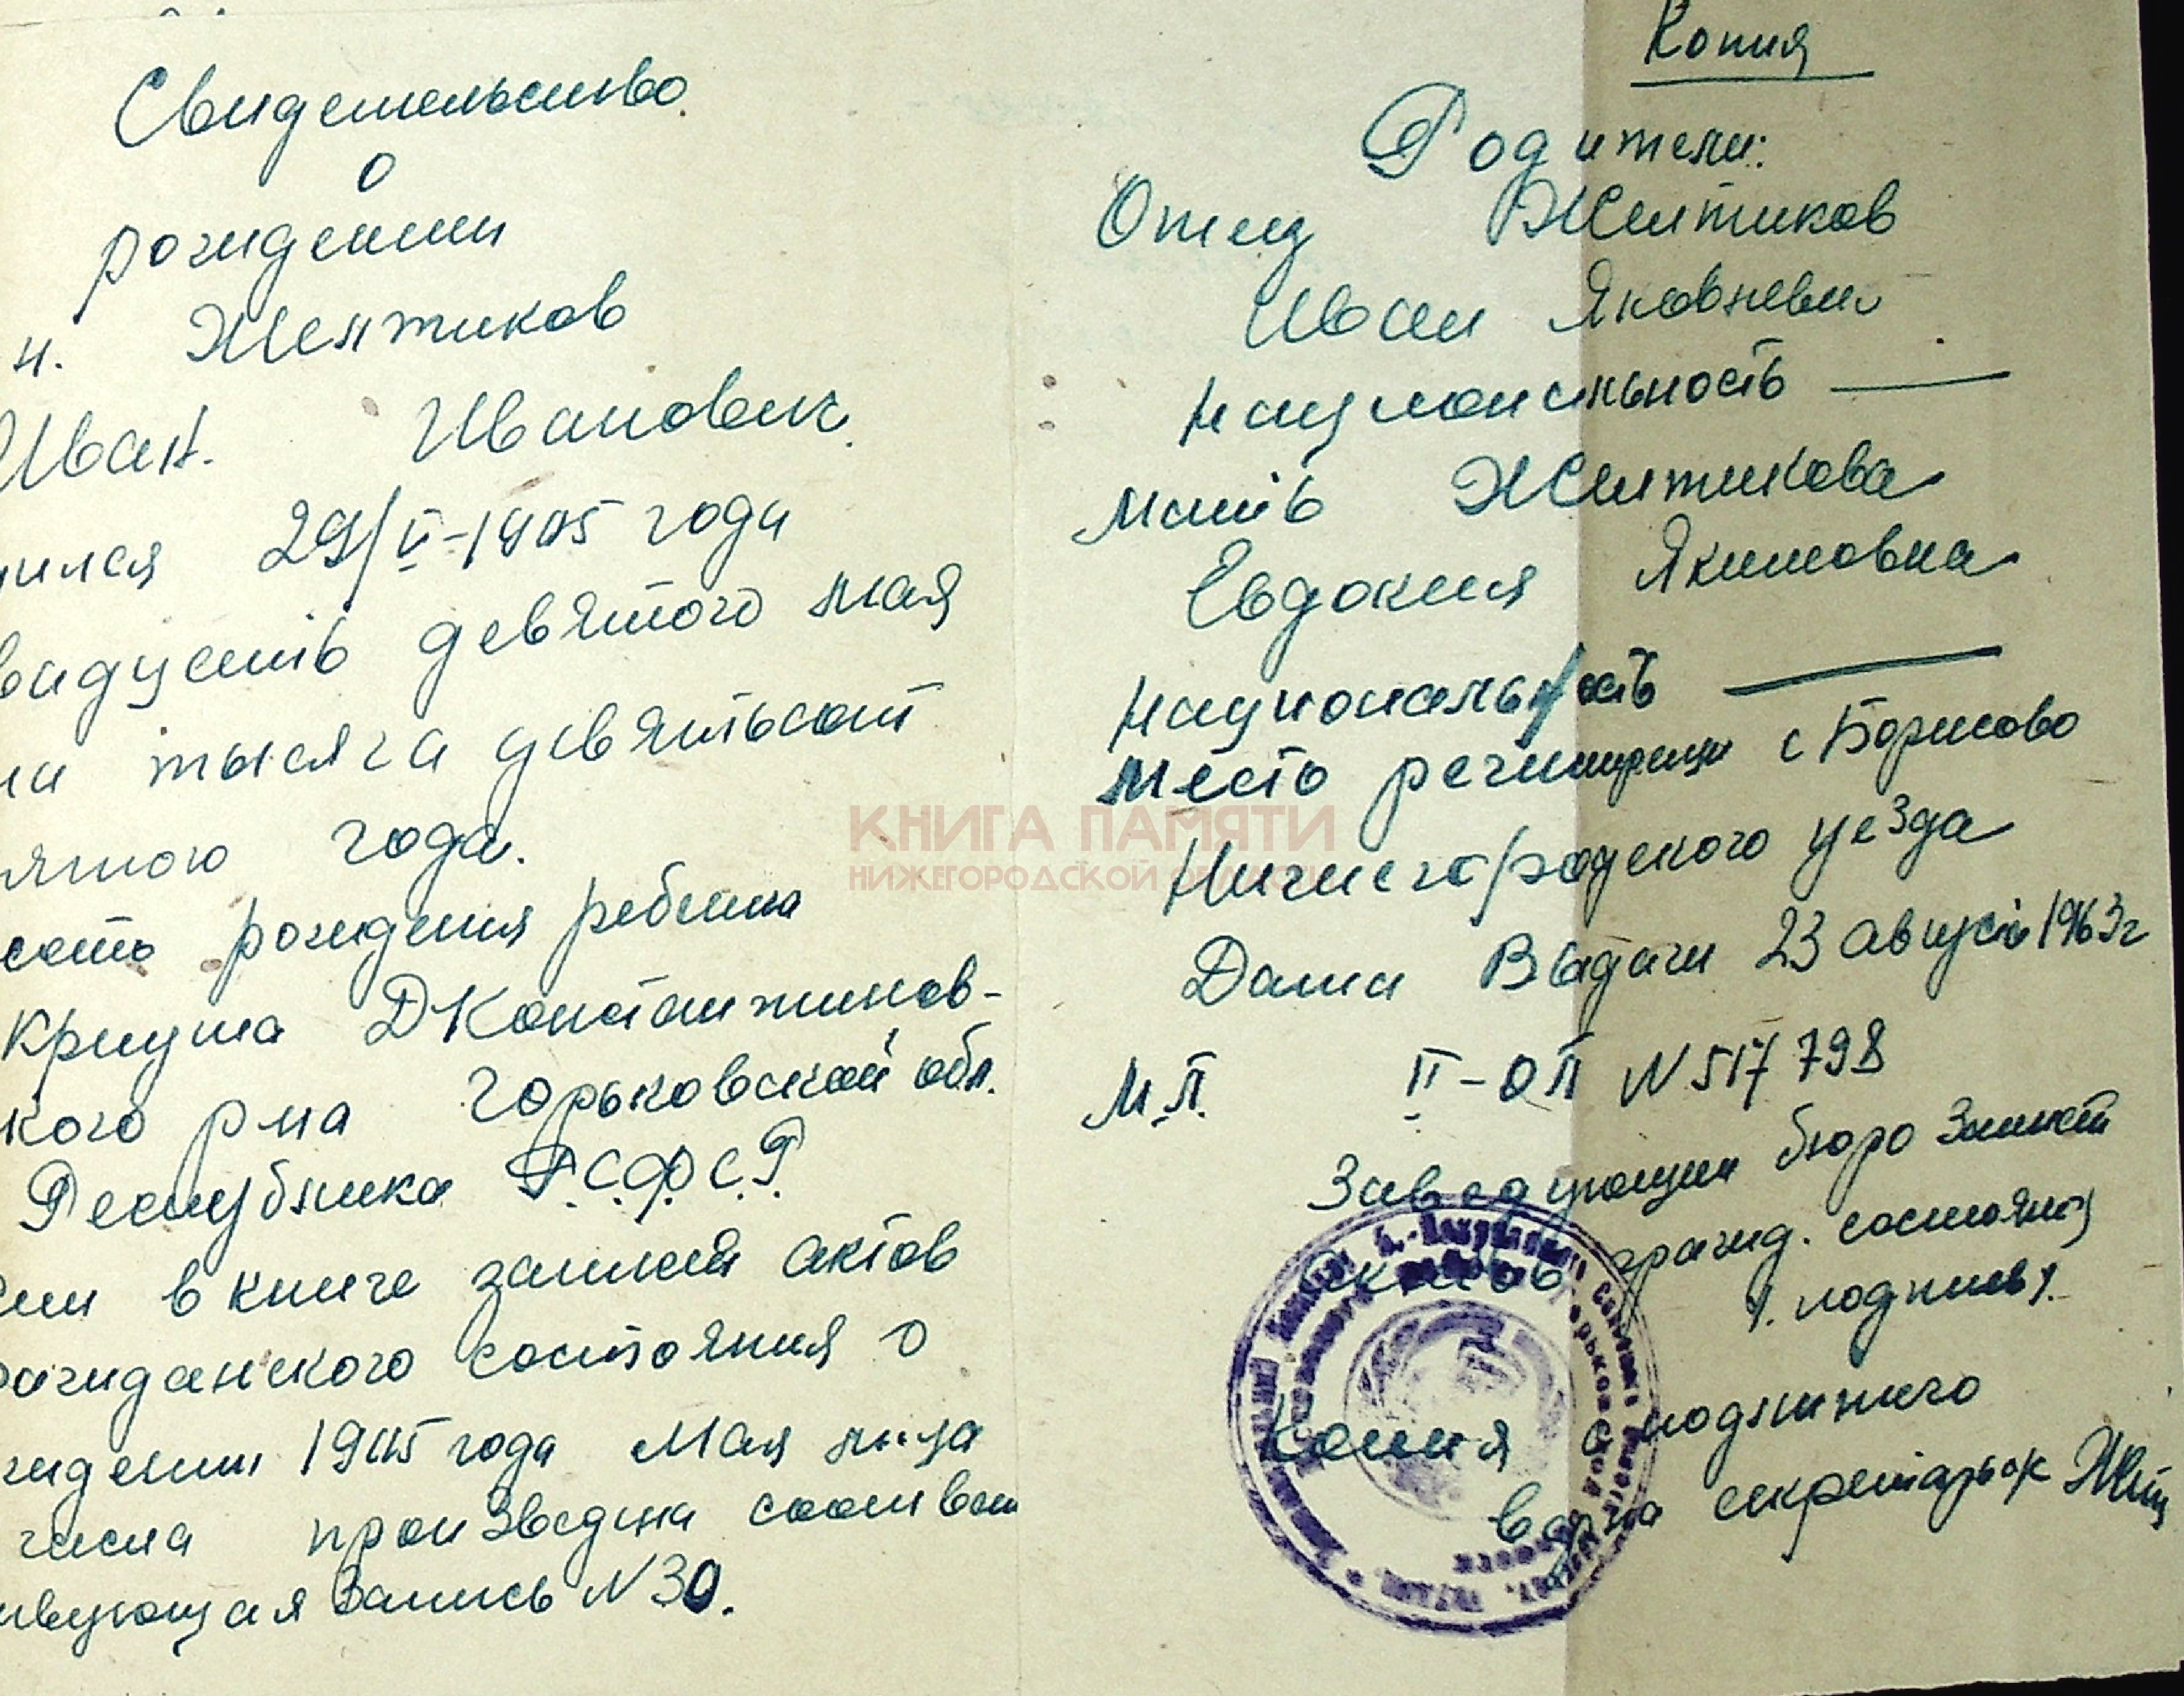 Свидетельство
о
рождении
н. Желтиков
Иван. Иванович.
29/V-1905 года
девятого мая
тысяча девятьсот
ятого года.
рождения ребенка
Криуша ДКонстантинов-
кого р на Горьковской обл.
Республика Р.С.Ф.С.Р.
в книге записей актов
состояния о
1905 года Мая м-ца
числа произведена соответ
ивующая запись N 30.
Копия
Родители:
Отец Желтиков
Иван Яковлевич
Национальность —
Мать Желтикова
Евдокия Якимовна
Национальность —
Место регистрации с Борисово
Нижегородского уезда
Дата Выдачи 23 августа 1963 г
М.П. II-ОП N 517798
Заведующий бюро записи
актов гражд. состояния
/. подпись/.
Копия с подлинного
верна секретарь с/с
КНИГА ПАМЯТИ
НИЖЕГОРОДСКОЙ ОБЛАСТИ